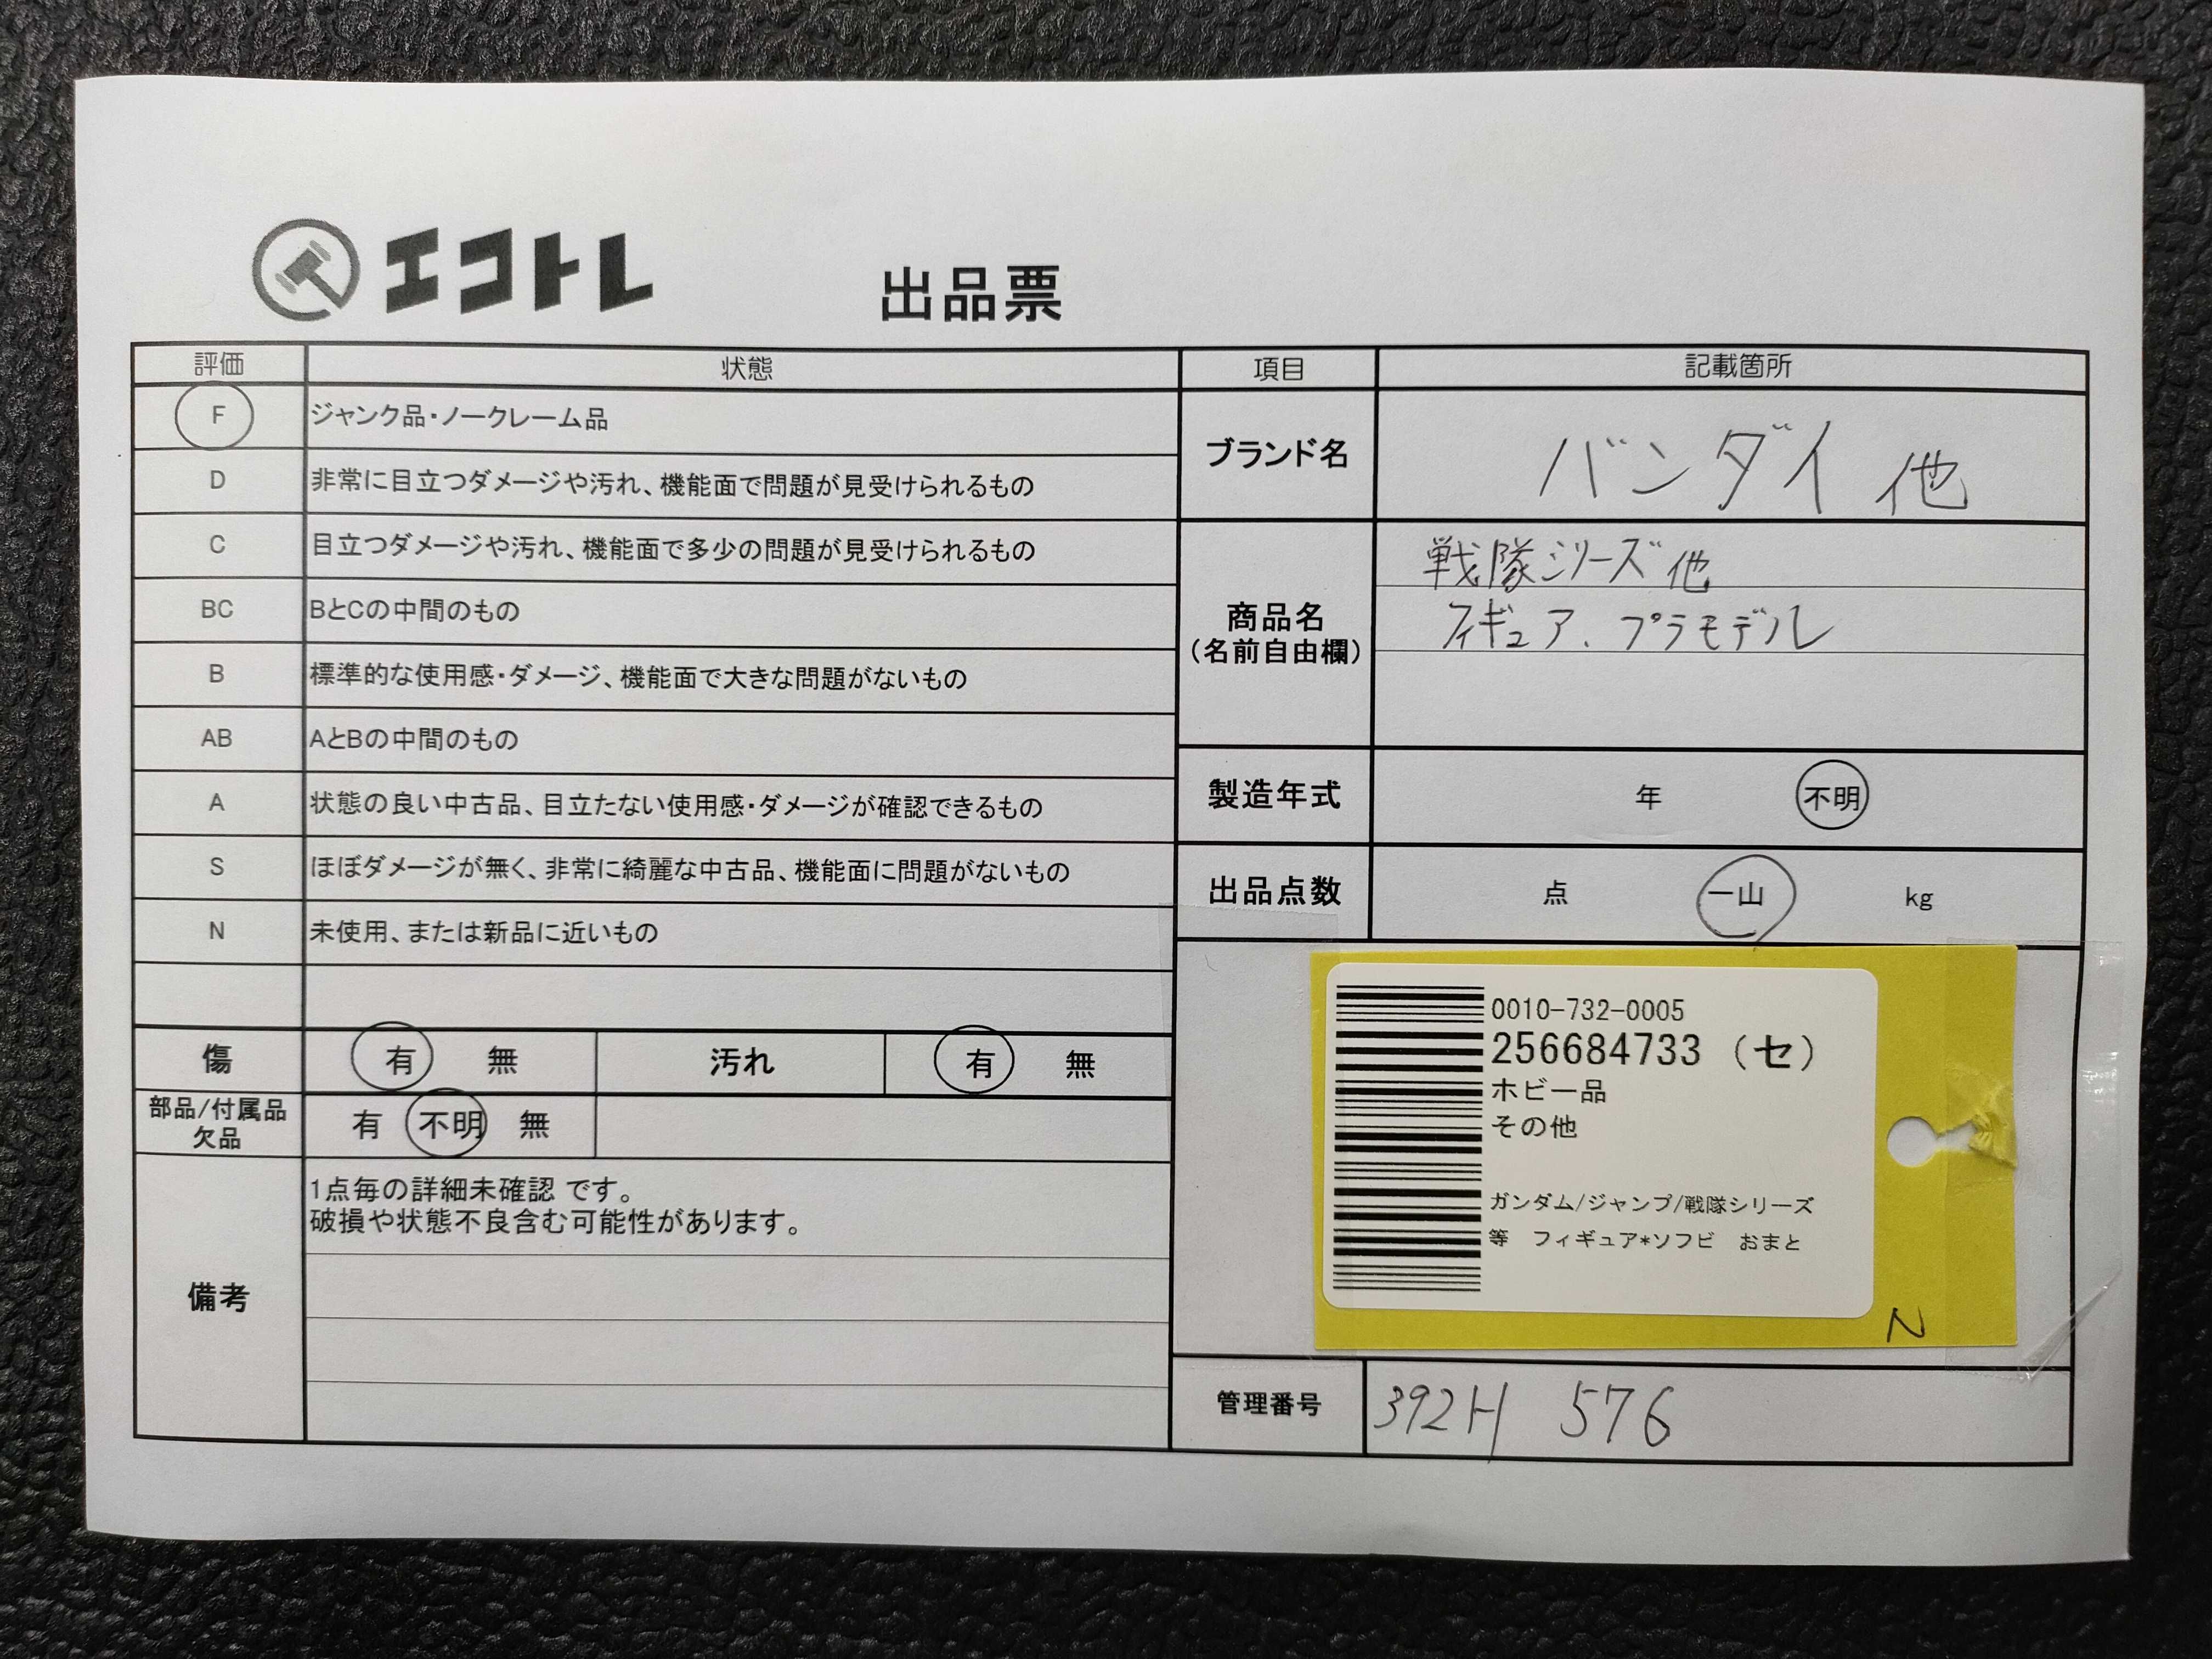 エコトレ
出品票
評価 状態
F ジャンク品・ノークレーム品
D 非常に目立つダメージや汚れ、機能面で問題が見受けられるもの
C 目立つダメージや汚れ、機能面で多少の問題が見受けられるもの
BC BとCの中間のもの
B 標準的な使用感・ダメージ、機能面で大きな問題がないもの
AB AとBの中間のもの
A 状態の良い中古品、目立たない使用感・ダメージが確認できるもの
S ほぼダメージが無く、非常に綺麗な中古品、機能面に問題がないもの
N 未使用、または新品に近いもの
傷 有 無 汚れ 有 無
部品/付属品
欠品
有 不明 無
備考
1点毎の詳細未確認 です。
破損や状態不良含む可能性があります。
項目 記載箇所
ブランド名 バンダイ 他
商品名
(名前自由欄)
戦隊シリーズ 他
フィギュア、プラモデル
製造年式 年 不明
出品点数 点 一山 kg
0010-732-0005
256684733 (セ)
ホビー品
その他
ガンダム/ジャンプ/戦隊シリーズ
等 フィギュア*ソフビ おまと
N
管理番号 392H 576